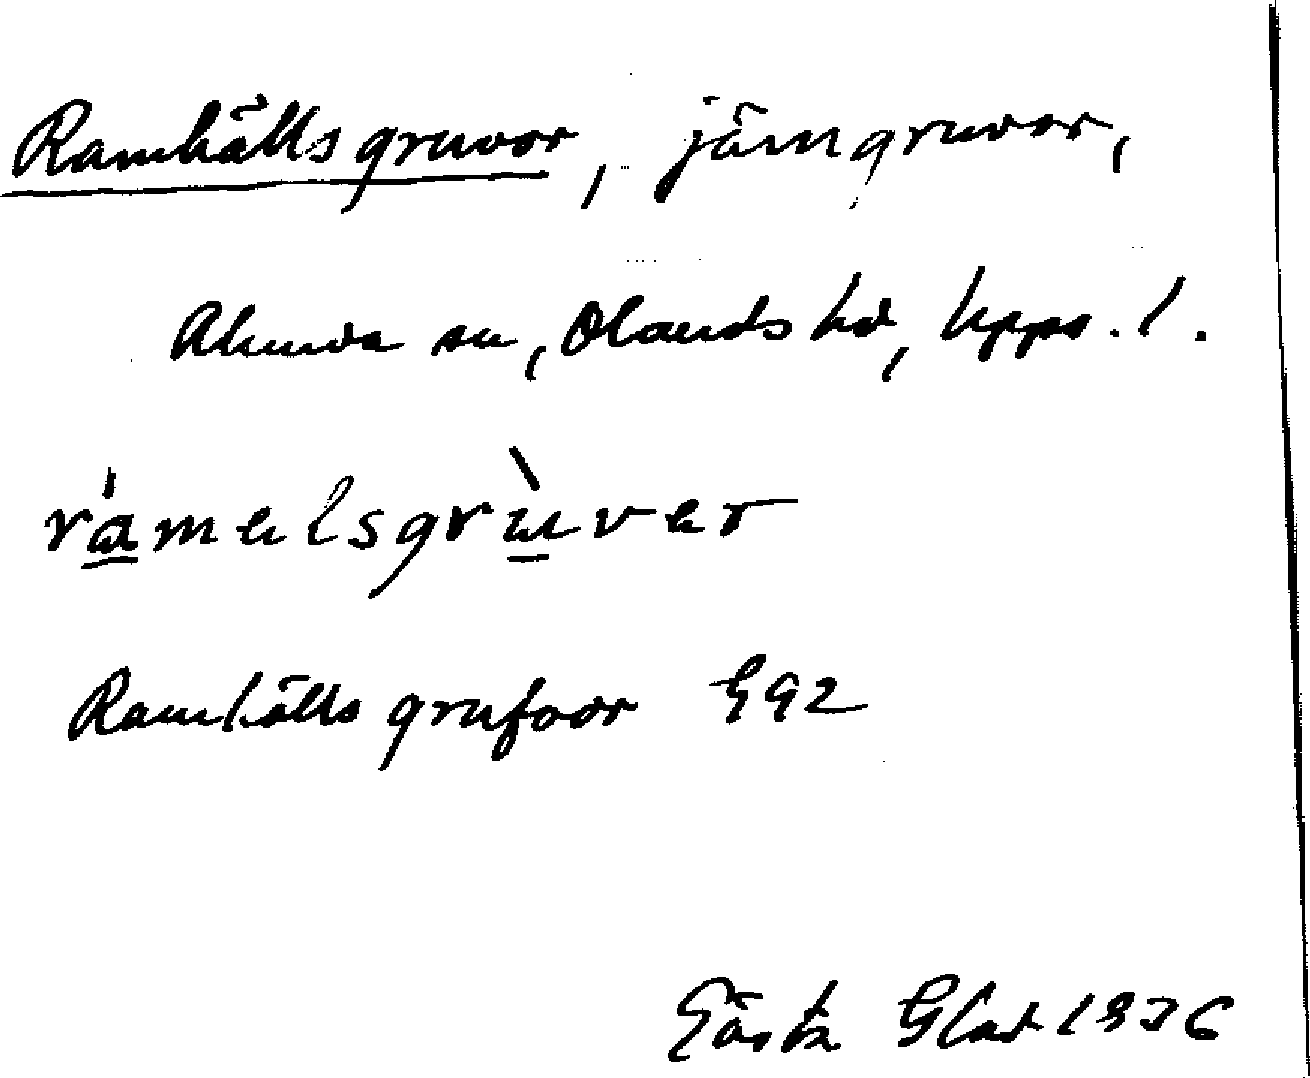 Ramhälls gruvor, järngruvor,
Alunda sn, Olands hd, Upps. l.
ra̲̍melsgrù̲ver
Ramhälls grufvor G92
Gösta Glad 1936